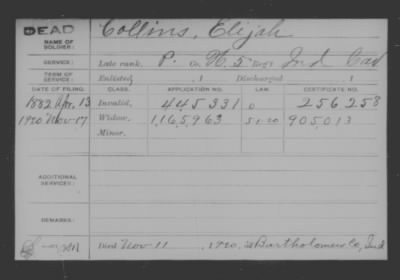 DEAD
Collins, Elijah
NAME OF SOLDIER:
SERVICE: Late rank, P. Co. K. 5 Reg't Ind Cav
TERM OF SERVICE: Enlisted , 1 Discharged , 1
DATE OF FILING. CLASS. APPLICATION NO. LAW. CERTIFICATE NO.
1882 Apr. 13 Invalid, 445331 256258
1920 Nov-17 Widow, 1,165,963 905,013
Minor,
ADDITIONAL SERVICES:
REMARKS:
Died Nov 11, 1920, at Bartholomew Co, Ind